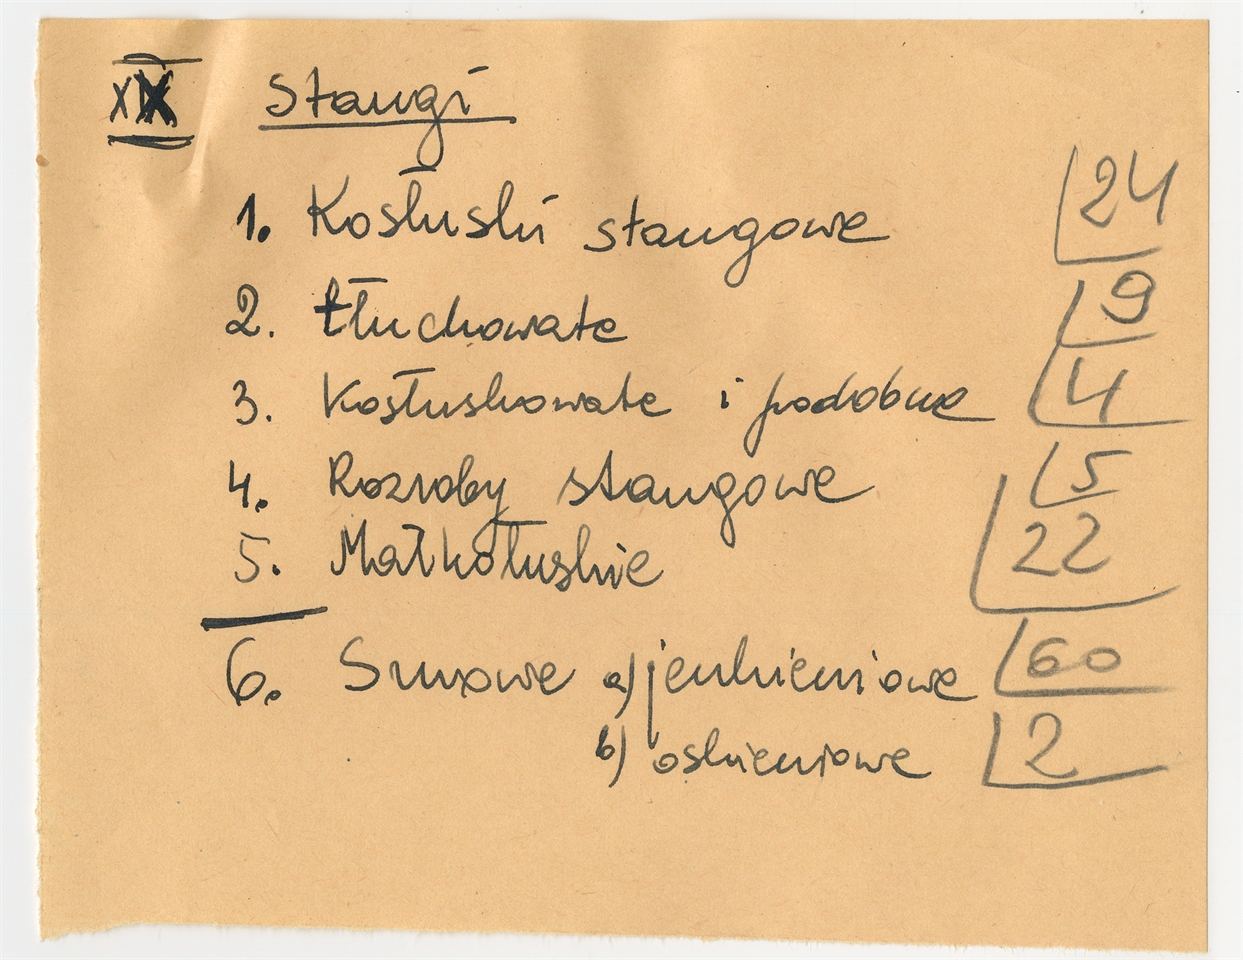 XIX Stangi
1. Kostuski stangowe 24
2. tłuchowate 9
3. Kostuskowate i podobne 4
4. Rozroby stangowe 5
5. Małkotuskie 22
6. Smxowe a) jenkieniowe 60
b) oskieniowe 2